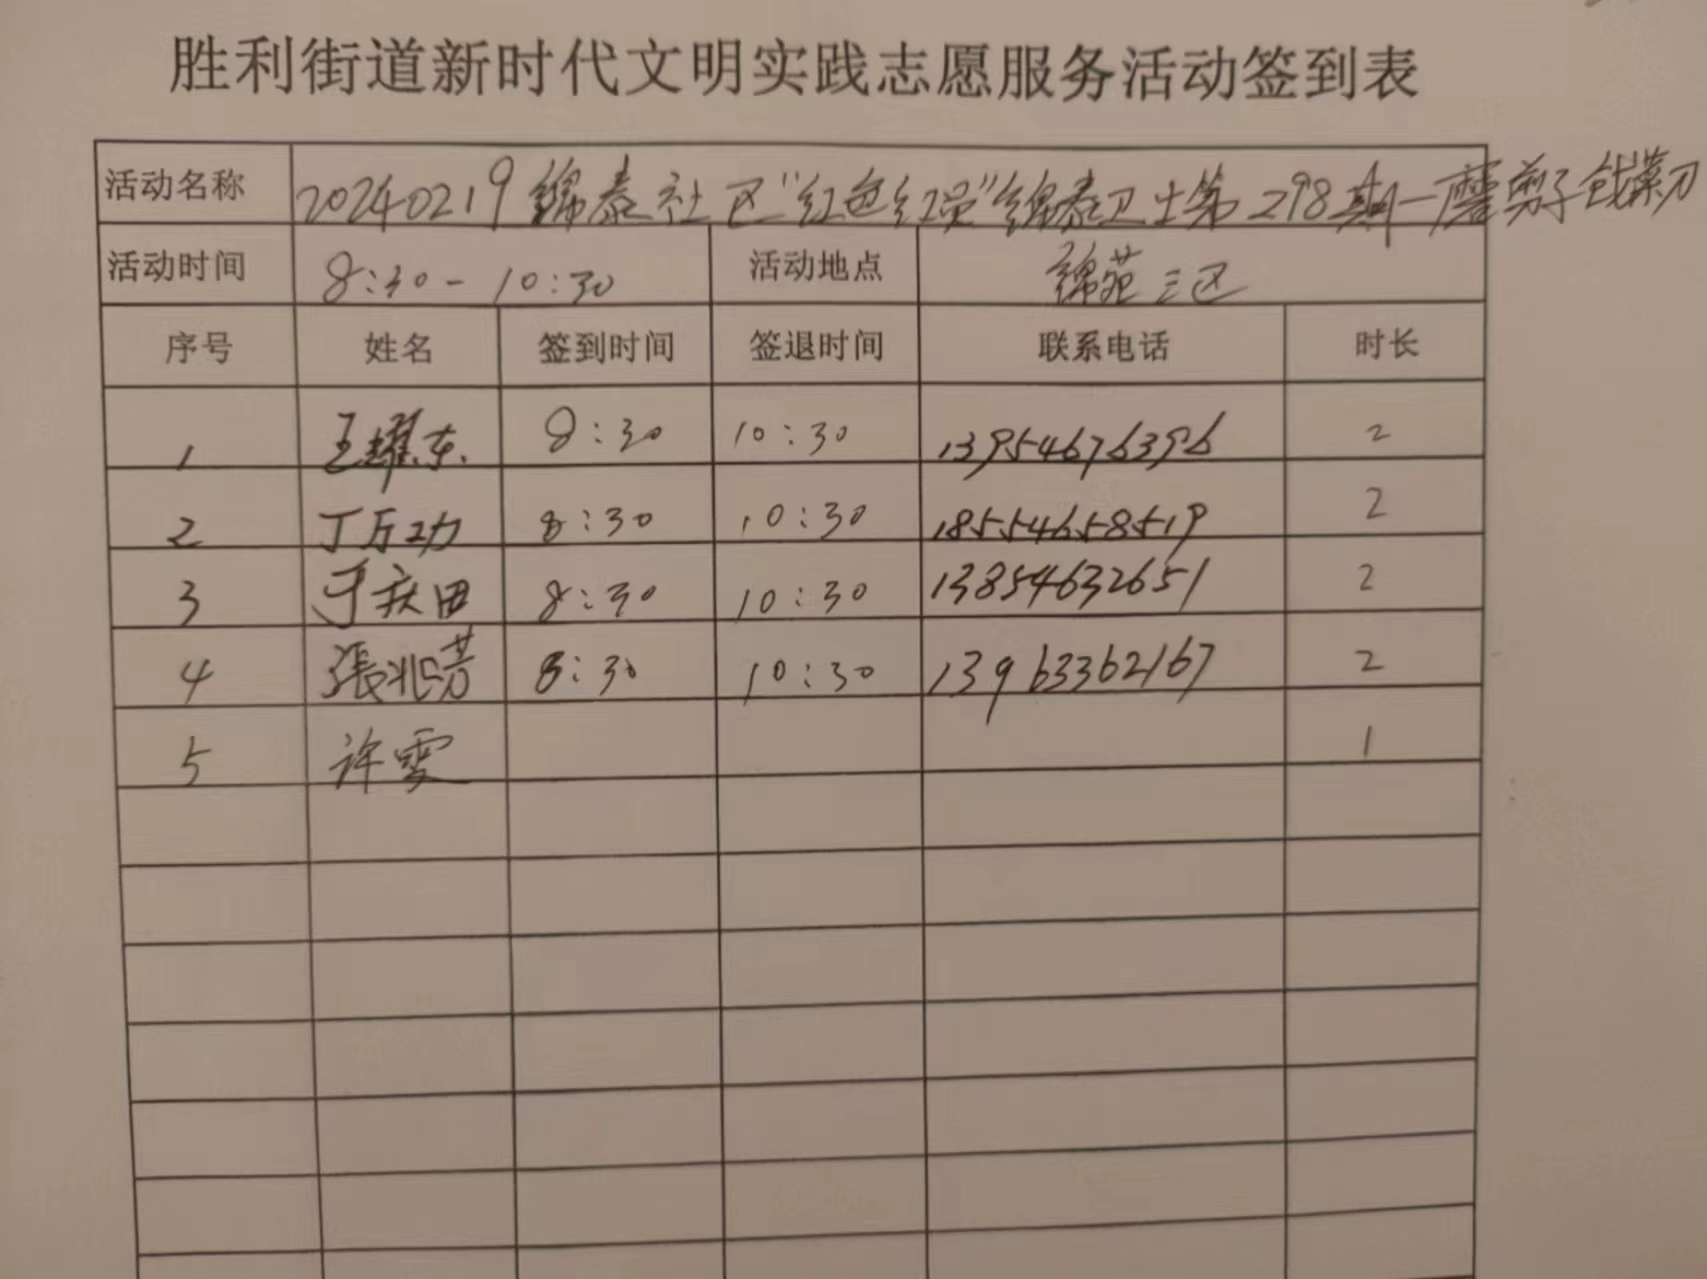 胜利街道新时代文明实践志愿服务活动签到表
活动名称 20240219锦泰社区"红色红灵"锦泰卫士第298期一磨剪子戗菜刀
活动时间 8:30-10:30 活动地点 锦苑三区
序号 姓名 签到时间 签退时间 联系电话 时长
1 王耀东 8:30 10:30 13954676396 2
2 丁万功 8:30 10:30 18554658519 2
3 于庆田 8:30 10:30 13854632651 2
4 張兆芳 8:30 10:30 13963362167 2
5 许雯 1